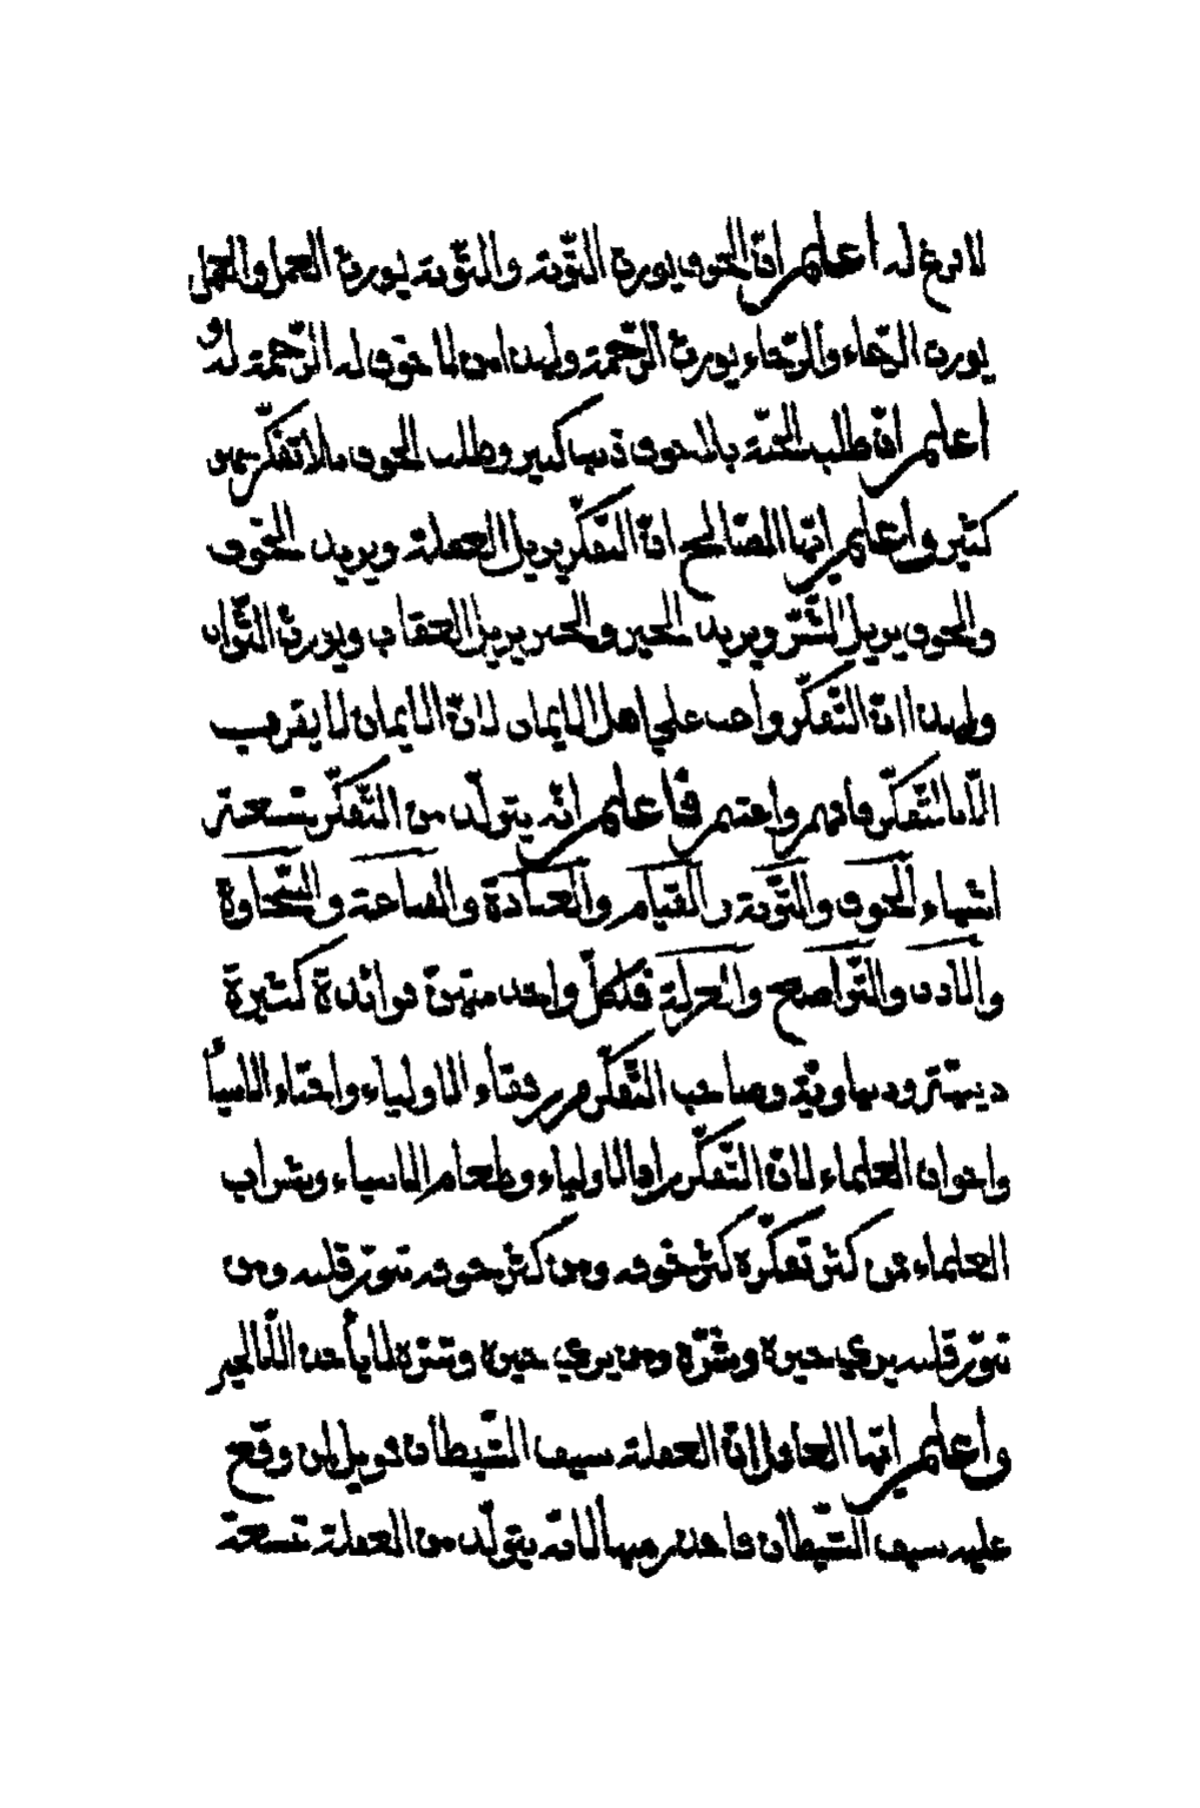 لا ورع له أعلم انّ الخوف يورث التّوبة والتّوبة يورث العمل والعمل
يورث الرّجاء والرّجاء يورث الرّحمة ولهذا من لا خوف له لا رحمة له
أعلم انّ طلب الجنّة بلا خوف ذنب كبير وطلب الخوف بلا تفكّر
كثير واعلم ايّها الصّالح انّ التّفكّر يزيل الغفلة ويزيد الخوف
والخوف يزيل الشّرّ ويزيد الخير والخير يزيل العقاب ويورث الثّواب
ولهذا انّ التّفكّر واجب علي اهل الايمان لانّ الايمان لا
الّا بالتّفكّر فافهم واغتنم فاعلم انّه يتولّد من التّفكّر تسعة
اشياء الخوف والتّوبة والقيام والعبادة والقناعة والسّخاوة
والادب والتّواضع والعزلة فلكلّ واحد منهنّ فوائدة كثيرة
دينيّة ودنياويّة وصاحب التّفكّر من رفقاء الاولياء واحبّاء الانبياء
واخوان العلماء لانّ التّفكّر الاولياء وطعام الانبياء وشراب
العلماء من كثر تفكّره كثر خوفه ومن كثر خوفه تنوّر قلبه ومن
تنوّر قلبه يري خيره وشرّه ومن يري خيره وشرّه لا يأخذ الّا الخير
واعلم ايّها العاقل انّ الغفلة سيف الشّيطان فويل لمن وقع
عليه سيف الشّيطان فاحذر منها لانّه يتولّد من الغفلة تسعة